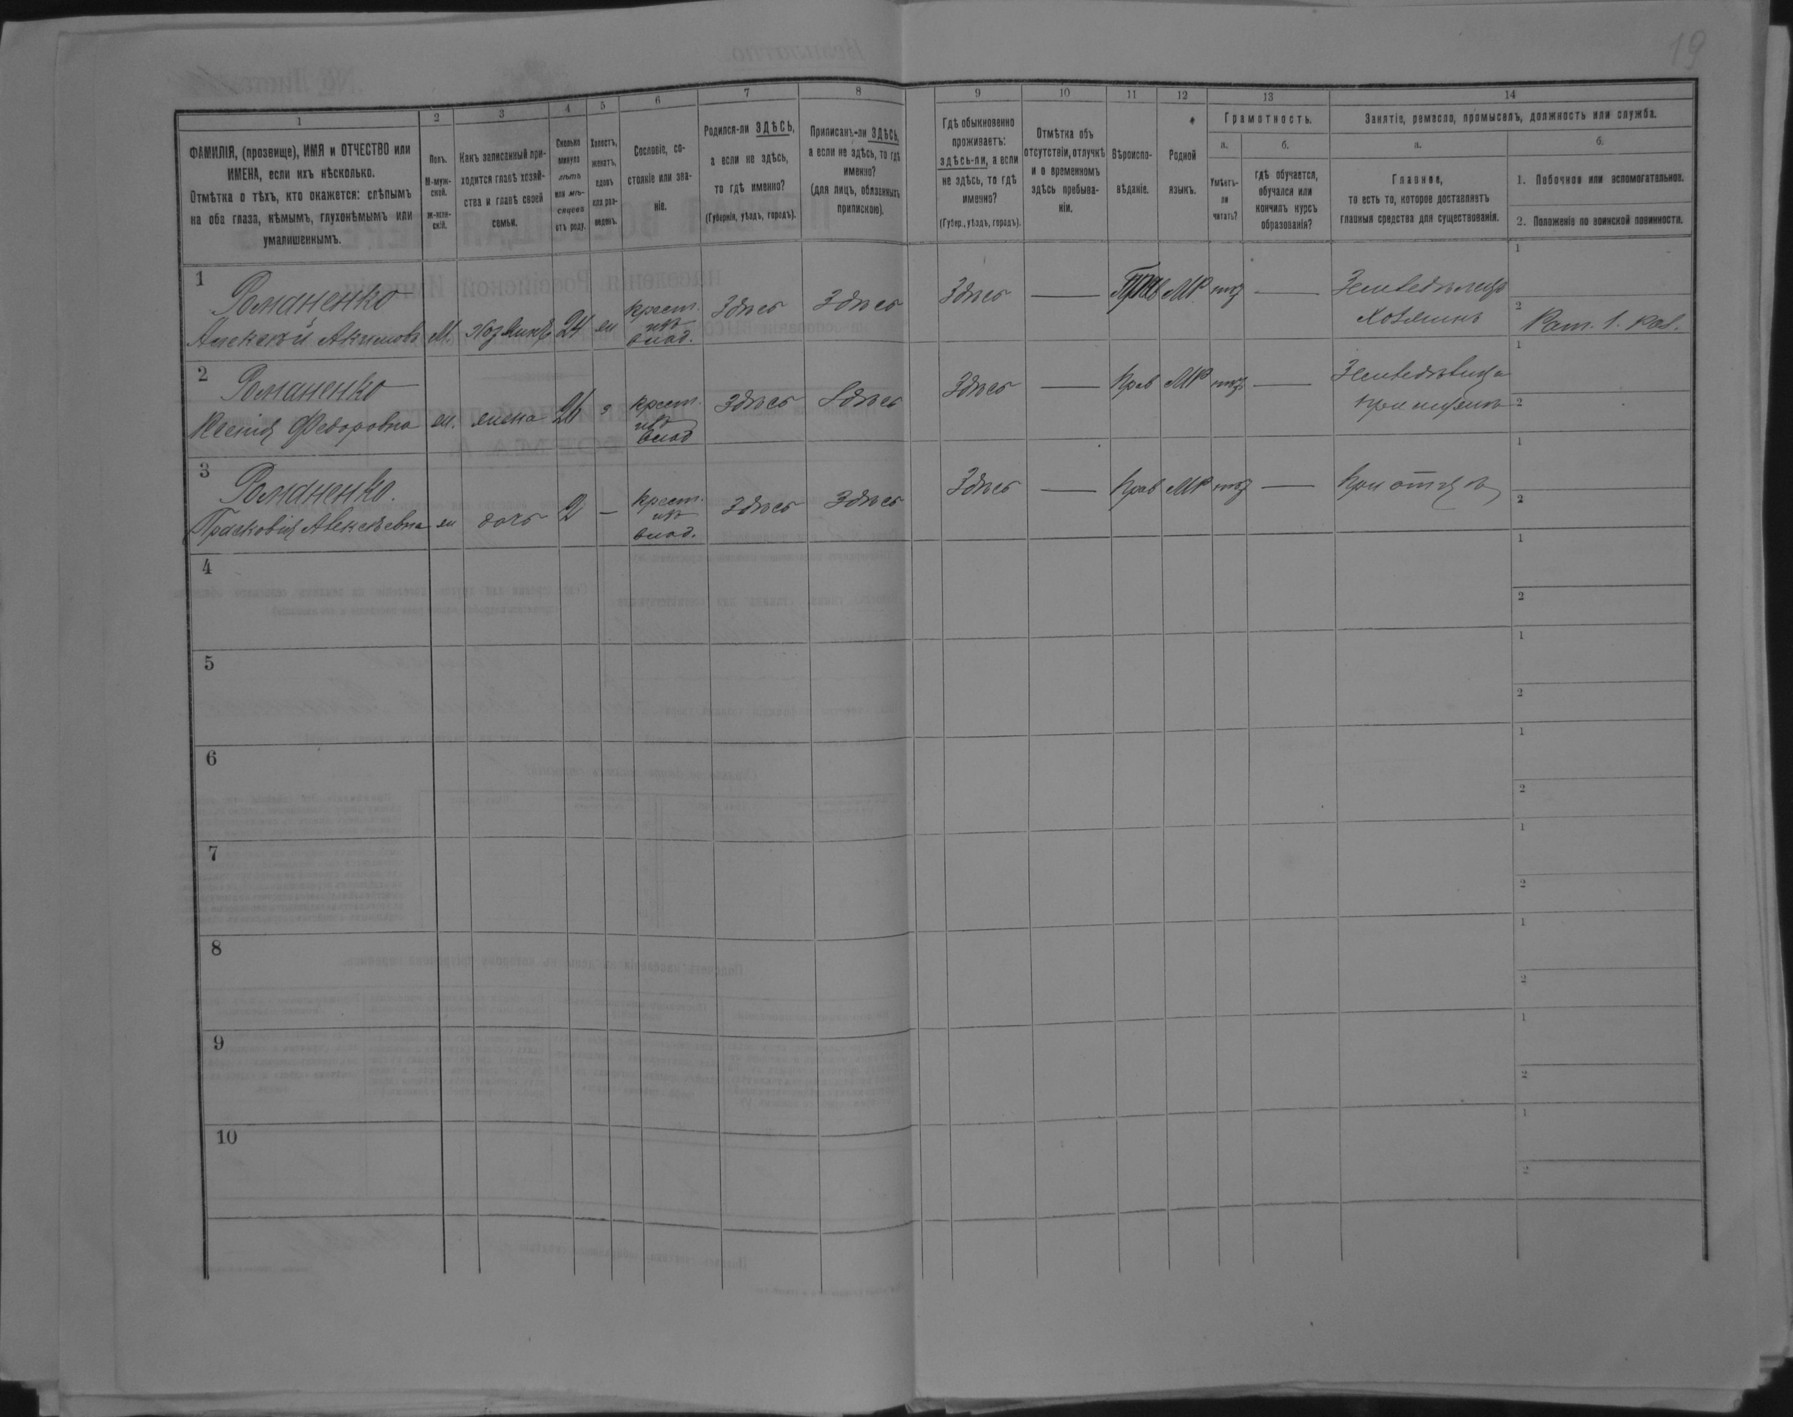 19
1 2 3 4 5 6 7 8 9 10 11 12 13 14
ФАМИЛІЯ, (прозвище), ИМЯ и ОТЧЕСТВО или
ИМЕНА, если ихъ нѣсколько.
Отмѣтка о тѣхъ, кто окажется: слѣпымъ
на оба глаза, нѣмымъ, глухонѣмымъ или
умалишеннымъ.
Полъ.
М-муж-
ской.
Ж-жен-
скій.
Какъ записанный при-
ходится главѣ хозяй-
ства и главѣ своей
семьи.
Сколько
минуло
лѣтъ
или мѣ-
сяцевъ
отъ роду.
Холостъ,
женатъ,
вдовъ
или раз-
веденъ.
Сословіе, со-
стояніе или зва-
ніе.
Родился-ли ЗДѢСЬ,
а если не здѣсь,
то гдѣ именно?
(Губернія, уѣздъ, городъ).
Приписанъ-ли ЗДѢСЬ,
а если не здѣсь, то гдѣ
именно?
(для лицъ, обязанныхъ
припискою).
Гдѣ обыкновенно
проживаетъ:
здѣсь-ли, а если
не здѣсь, то гдѣ
именно?
(Губер., уѣздъ, городъ).
Отмѣтка объ
отсутствіи, отлучкѣ
и о временномъ
здѣсь пребыва-
ніи.
Вѣроиспо-
вѣданіе.
Родной
языкъ.
Грамотность.
а.
Умѣетъ-
ли
читать?
б.
гдѣ обучается,
обучался или
кончилъ курсъ
образованія?
Занятіе, ремесло, промыселъ, должность или служба.
а.
Главное,
то есть то, которое доставляетъ
главныя средства для существованія.
б.
1. Побочное или вспомогательное.
2. Положеніе по воинской повинности.
1
Романенко
Алексѣй Акимовъ М. хозяинъ 24 ж крест. изъ влад. Здѣсь Здѣсь Здѣсь — МР — Земледѣлецъ
Хозяинъ
1
2 Рат. 1. раз.
2
Романенко
Ксенія Федоровна ж. жена 26 з крест. изъ влад Здѣсь Здѣсь Здѣсь — Прав МР — Земледѣлица
при мужѣ
1
2
3
Романенко.
Прасковія Алексѣевна ж дочь 2 — крест. изъ влад. Здѣсь Здѣсь Здѣсь — Прав МР — При отцѣ
1
2
4
1
2
5
1
2
6
1
2
7
1
2
8
1
2
9
1
2
10
1
2